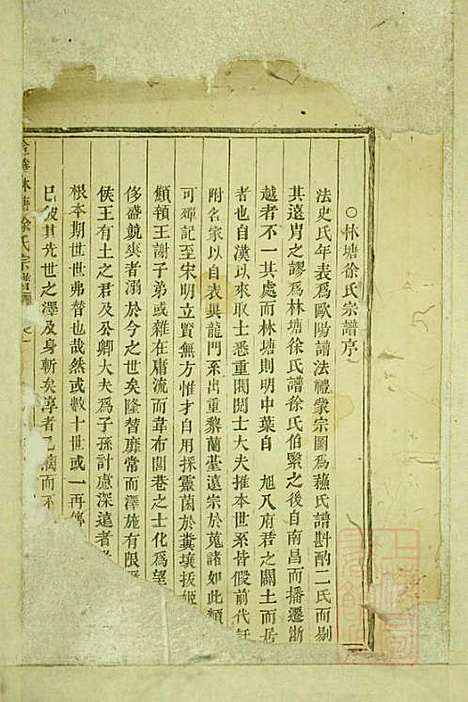 ○林塘徐氏宗譜序
法史氏年表爲歐陽譜法禮家宗圖爲蘇氏譜斟酌二氏而剔
其遠冑之謬爲林塘徐氏譜徐氏伯翳之後自南昌而播遷浙
越者不一其處而林塘則明中葉自 旭八府君之闢土而居
者也自漢以來取士悉重閥閱士大夫推本世系皆假前代
附名家以自表異龍門系出重黎蘭臺遠宗於菟諸如此類
可殫記至宋明立賢無方惟才自用採靈菌於糞壤拔姬
顦頓王謝子弟或雜在庸流而韋布閭巷之士化爲望
侈盛競爽者溺於今之世矣隆替靡常而澤施有限
侯王有土之君及公卿大夫爲子孫計慮深遠者
根本期世世弗替也哉然或數十世或一再傳
已 其先世之澤及身斬矣淳者已漓而不
林塘徐氏宗譜